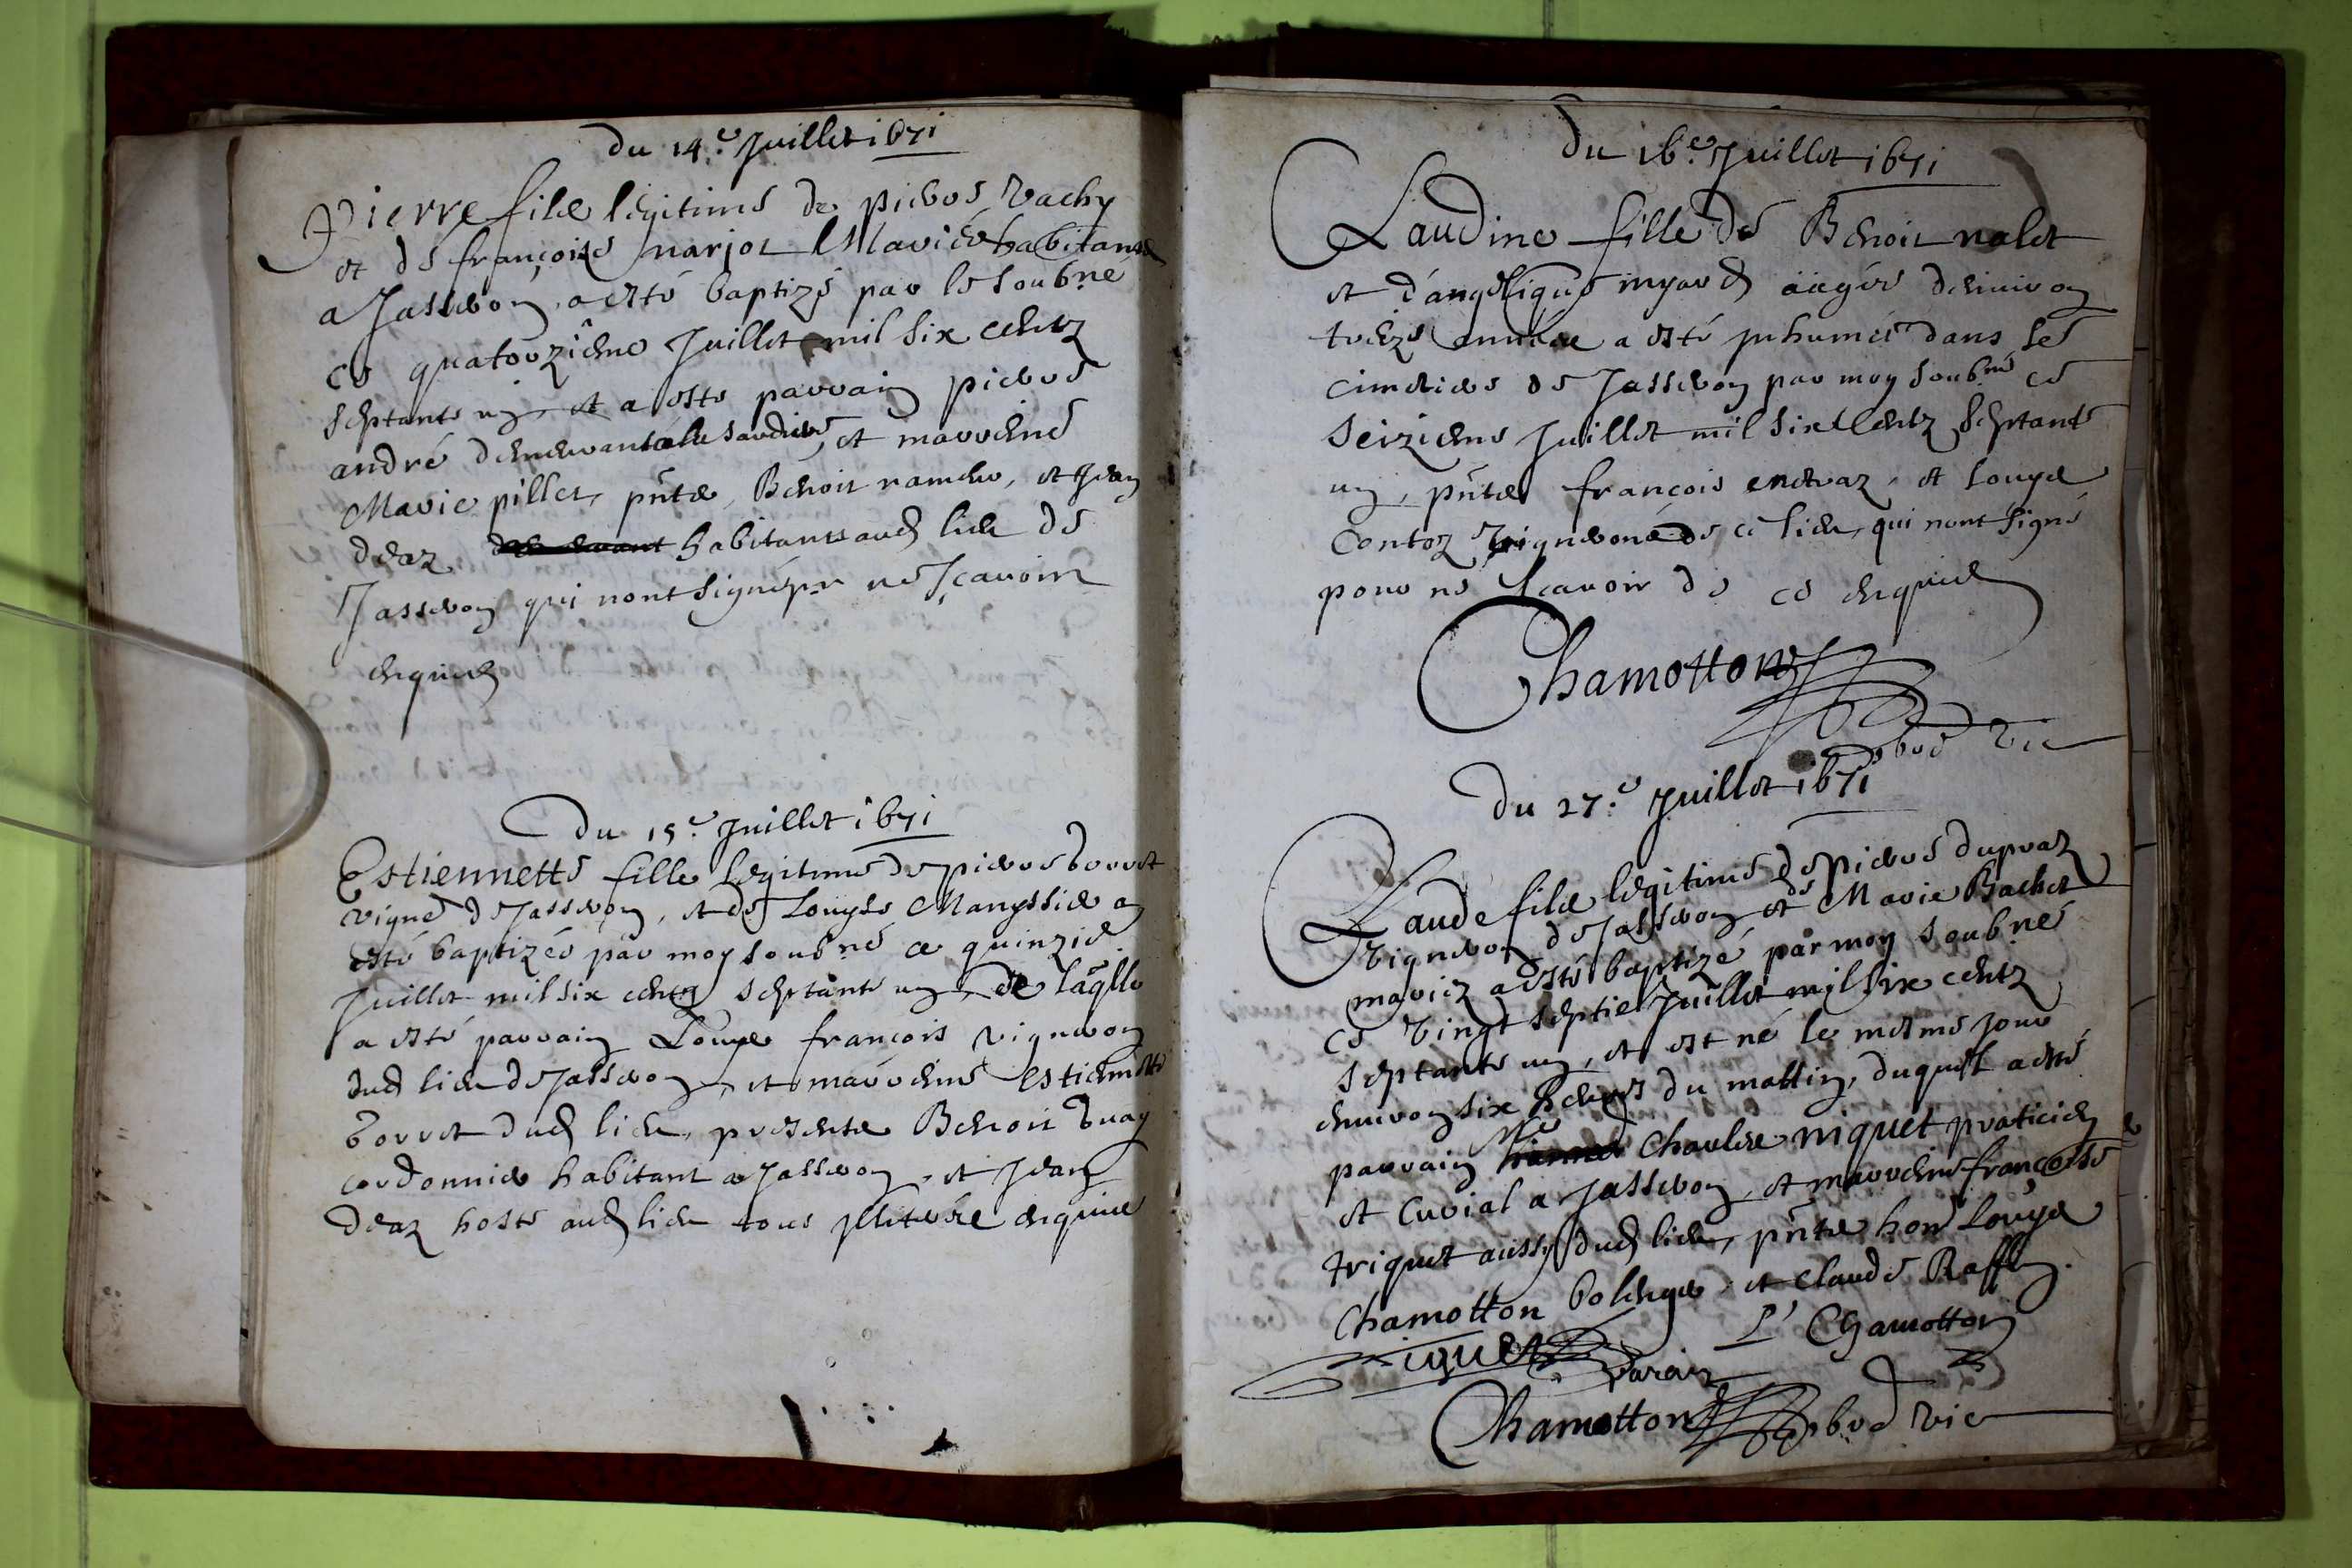 du 14.e Juillet 1671
Pierre filz legitime de pierre Vachy
et de françoise narjot Mariés habitans
a Jasseron, a esté baptizé par le soub.né
ce quatorziesme Juillet mil six centz
septante un, et a esté parrain pierre
andré et marreine
Marie pillet, pñtz, Benoit ramel, et Jean
deaz habitants aud lieu de
Jasseron qui nont signé p.r ne sçavoir
enquis
Du 15.e Juillet 1671
Estiennette fille legitime de pierre borret
vigne de Jasseron, et de Louyse a
esté baptizée par moy soub.né ce quinzie
Juillet mil six centz septante un, de laqlle
a esté parrain Louys françois vigneron
dud lieu de Jasseron, et marreine Estiennette
borret dud lieu, presentz Benoit
cordonnier habitant a Jasseron, et Jean
deaz hoste aud lieu tous illiterés enquis
du 16.e Juillet 1671
Claudine fille de Benoit nalet
et d'angelique myard aagée denviron
treize années a esté inhumée dans le
cimetiere de Jasseron par moy soub.né ce
seiziesme Juillet mil six centz septante
un, pñtz françois enetraz, et Louys
Contoz vignerons de ce lieu, qui nont signé
pour ne sçavoir de ce enquis
Chamotton
pbre vic
du 27.e Juillet 1671
Claude filz legitime de pierre dupraz
vigneron de Jasseron et de Marie Bachet
mariez a esté baptizé par moy soub.né
ce vingt septie Juillet mil six centz
septante un, et est né le mesme jour
environ six heures du mattin, duquel a esté
parrain M.e Charles niquet praticien
et Curial a Jasseron, et marreine françoise
triquet aussy dud lieu, pñtz hon Louys
Chamotton bolenger, et Claude Raffin.
niquet parain
L Chamotton
Chamotton pbre vic